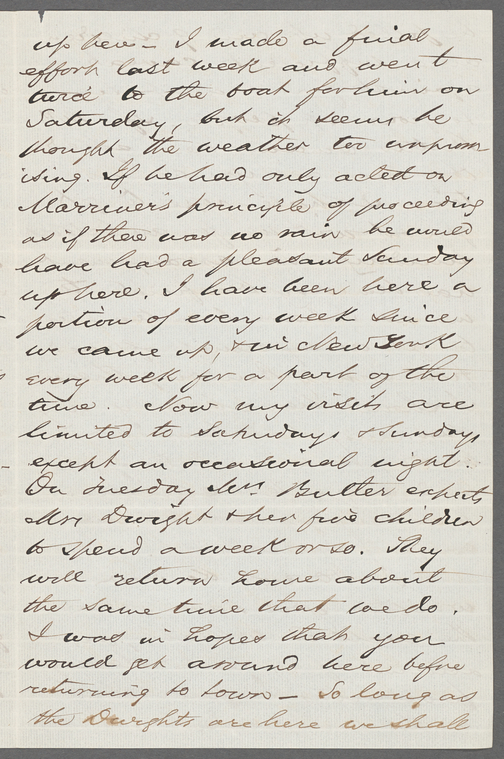 up here – I made a final
effort last week and went
twice to the boat for him on
Saturday, but it seems he
thought the weather too unprom-
ising. If he had only acted on
Marriner's principle of proceeding
as if there was no rain he would
have had a pleasant Sunday
up here. I have been here a
portion of every week since
we came up, & in New York
every week for a part of the
time. Now my visits are
limited to Saturdays & Sundays
except an occasional night.
On Tuesday Mrs Butler expects
Mrs Dwight & her five children
to spend a week or so. They
will return home about
the same time that we do.
I was in hopes that you
would get around here before
returning to town – So long as
the Dwights are here we shall